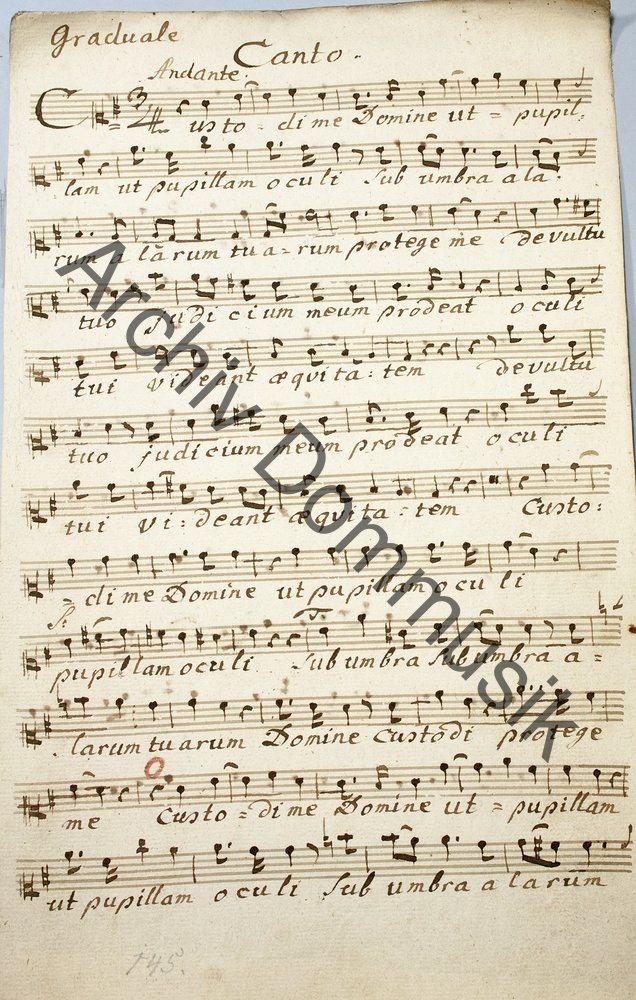 Graduale
Canto.
Andante.
Custo - di me Domine ut = pupil,
lam ut pupillam oculi sub umbra ala:
rum a larum tua = rum protege me de vultu
tuo judicium meum prodeat oculi
tui videant æquita: tem de vultu
tuo judicium meum prodeat oculi
tui vi: deant æquita: tem Custo:
= di me Domine ut pupillam oculi
pupillam oculi sub umbra sub umbra a =
larum tuarum Domine Custodi protege
me Custo = di me Domine ut = pupillam
ut pupillam oculi sub umbra alarum
145.
Archiv Dommusik